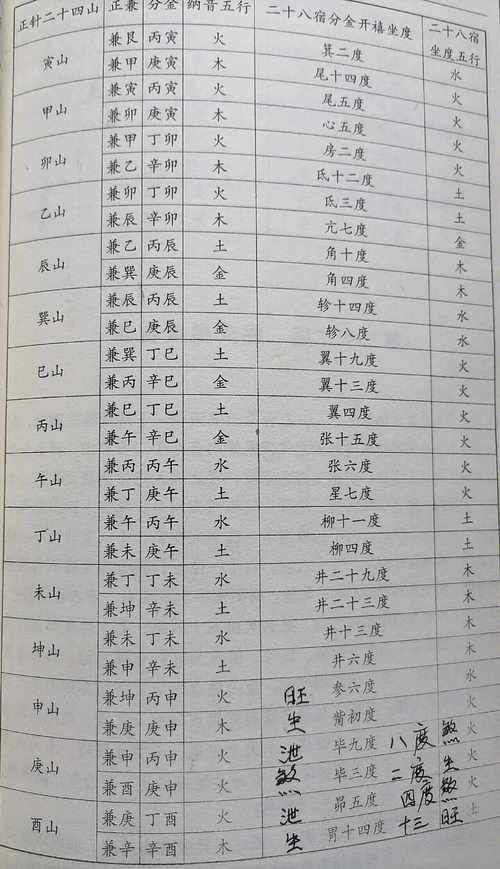 正针二十四山 正兼 分金 纳音五行 二十八宿分金开禧坐度 二十八宿坐度五行
寅山 兼艮 丙寅 火 箕二度 水
兼甲 庚寅 木 尾十四度 火
甲山 兼寅 丙寅 火 尾五度 火
兼卯 庚寅 木 心五度 火
卯山 兼甲 丁卯 火 房二度 火
兼乙 辛卯 木 氐十二度 土
乙山 兼卯 丁卯 火 氐三度 土
兼辰 辛卯 木 亢七度 金
辰山 兼乙 丙辰 土 角十度 木
兼巽 庚辰 金 角四度 木
巽山 兼辰 丙辰 土 轸十四度 水
兼巳 庚辰 金 轸八度 水
巳山 兼巽 丁巳 土 翼十九度 火
兼丙 辛巳 金 翼十三度 火
丙山 兼巳 丁巳 土 翼四度 火
兼午 辛巳 金 张十五度 火
午山 兼丙 丙午 水 张六度 火
兼丁 庚午 土 星七度 火
丁山 兼午 丙午 水 柳十一度 土
兼未 庚午 土 柳四度 土
未山 兼丁 丁未 水 井二十九度 木
兼坤 辛未 土 井二十三度 木
坤山 兼未 丁未 水 井十三度 木
兼申 辛未 土 井六度 木
申山 兼坤 丙申 火 旺 参六度 水
兼庚 庚申 木 生 觜初度 火
庚山 兼申 丙申 火 泄 毕九度 八度 煞 火
兼酉 庚申 木 煞 毕三度 二度 生 火
酉山 兼庚 丁酉 火 泄 昴五度 四度 煞 火
兼辛 辛酉 木 生 胃十四度 十三 旺 土